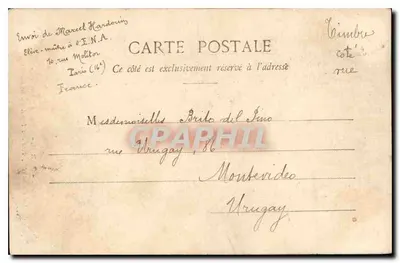 Envoi de Marcel Hardouin
Elève-maître à l'E.N.A.
10, rue Molitor
Paris (16e)
France.
CARTE POSTALE
Ce côté est exclusivement réservé à l'adresse
Timbre
côté
vue
Mesdemoiselles Brito del Pino
rue Urugay, 86
Montevideo
Urugay